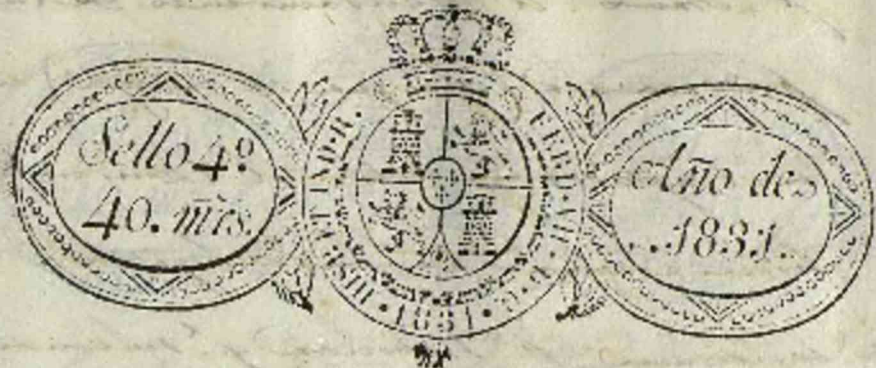 Sello 4º
40. mrs.
HISP. ET IND. R.
FERD. VII. D. G.
1831
Año de
1831.